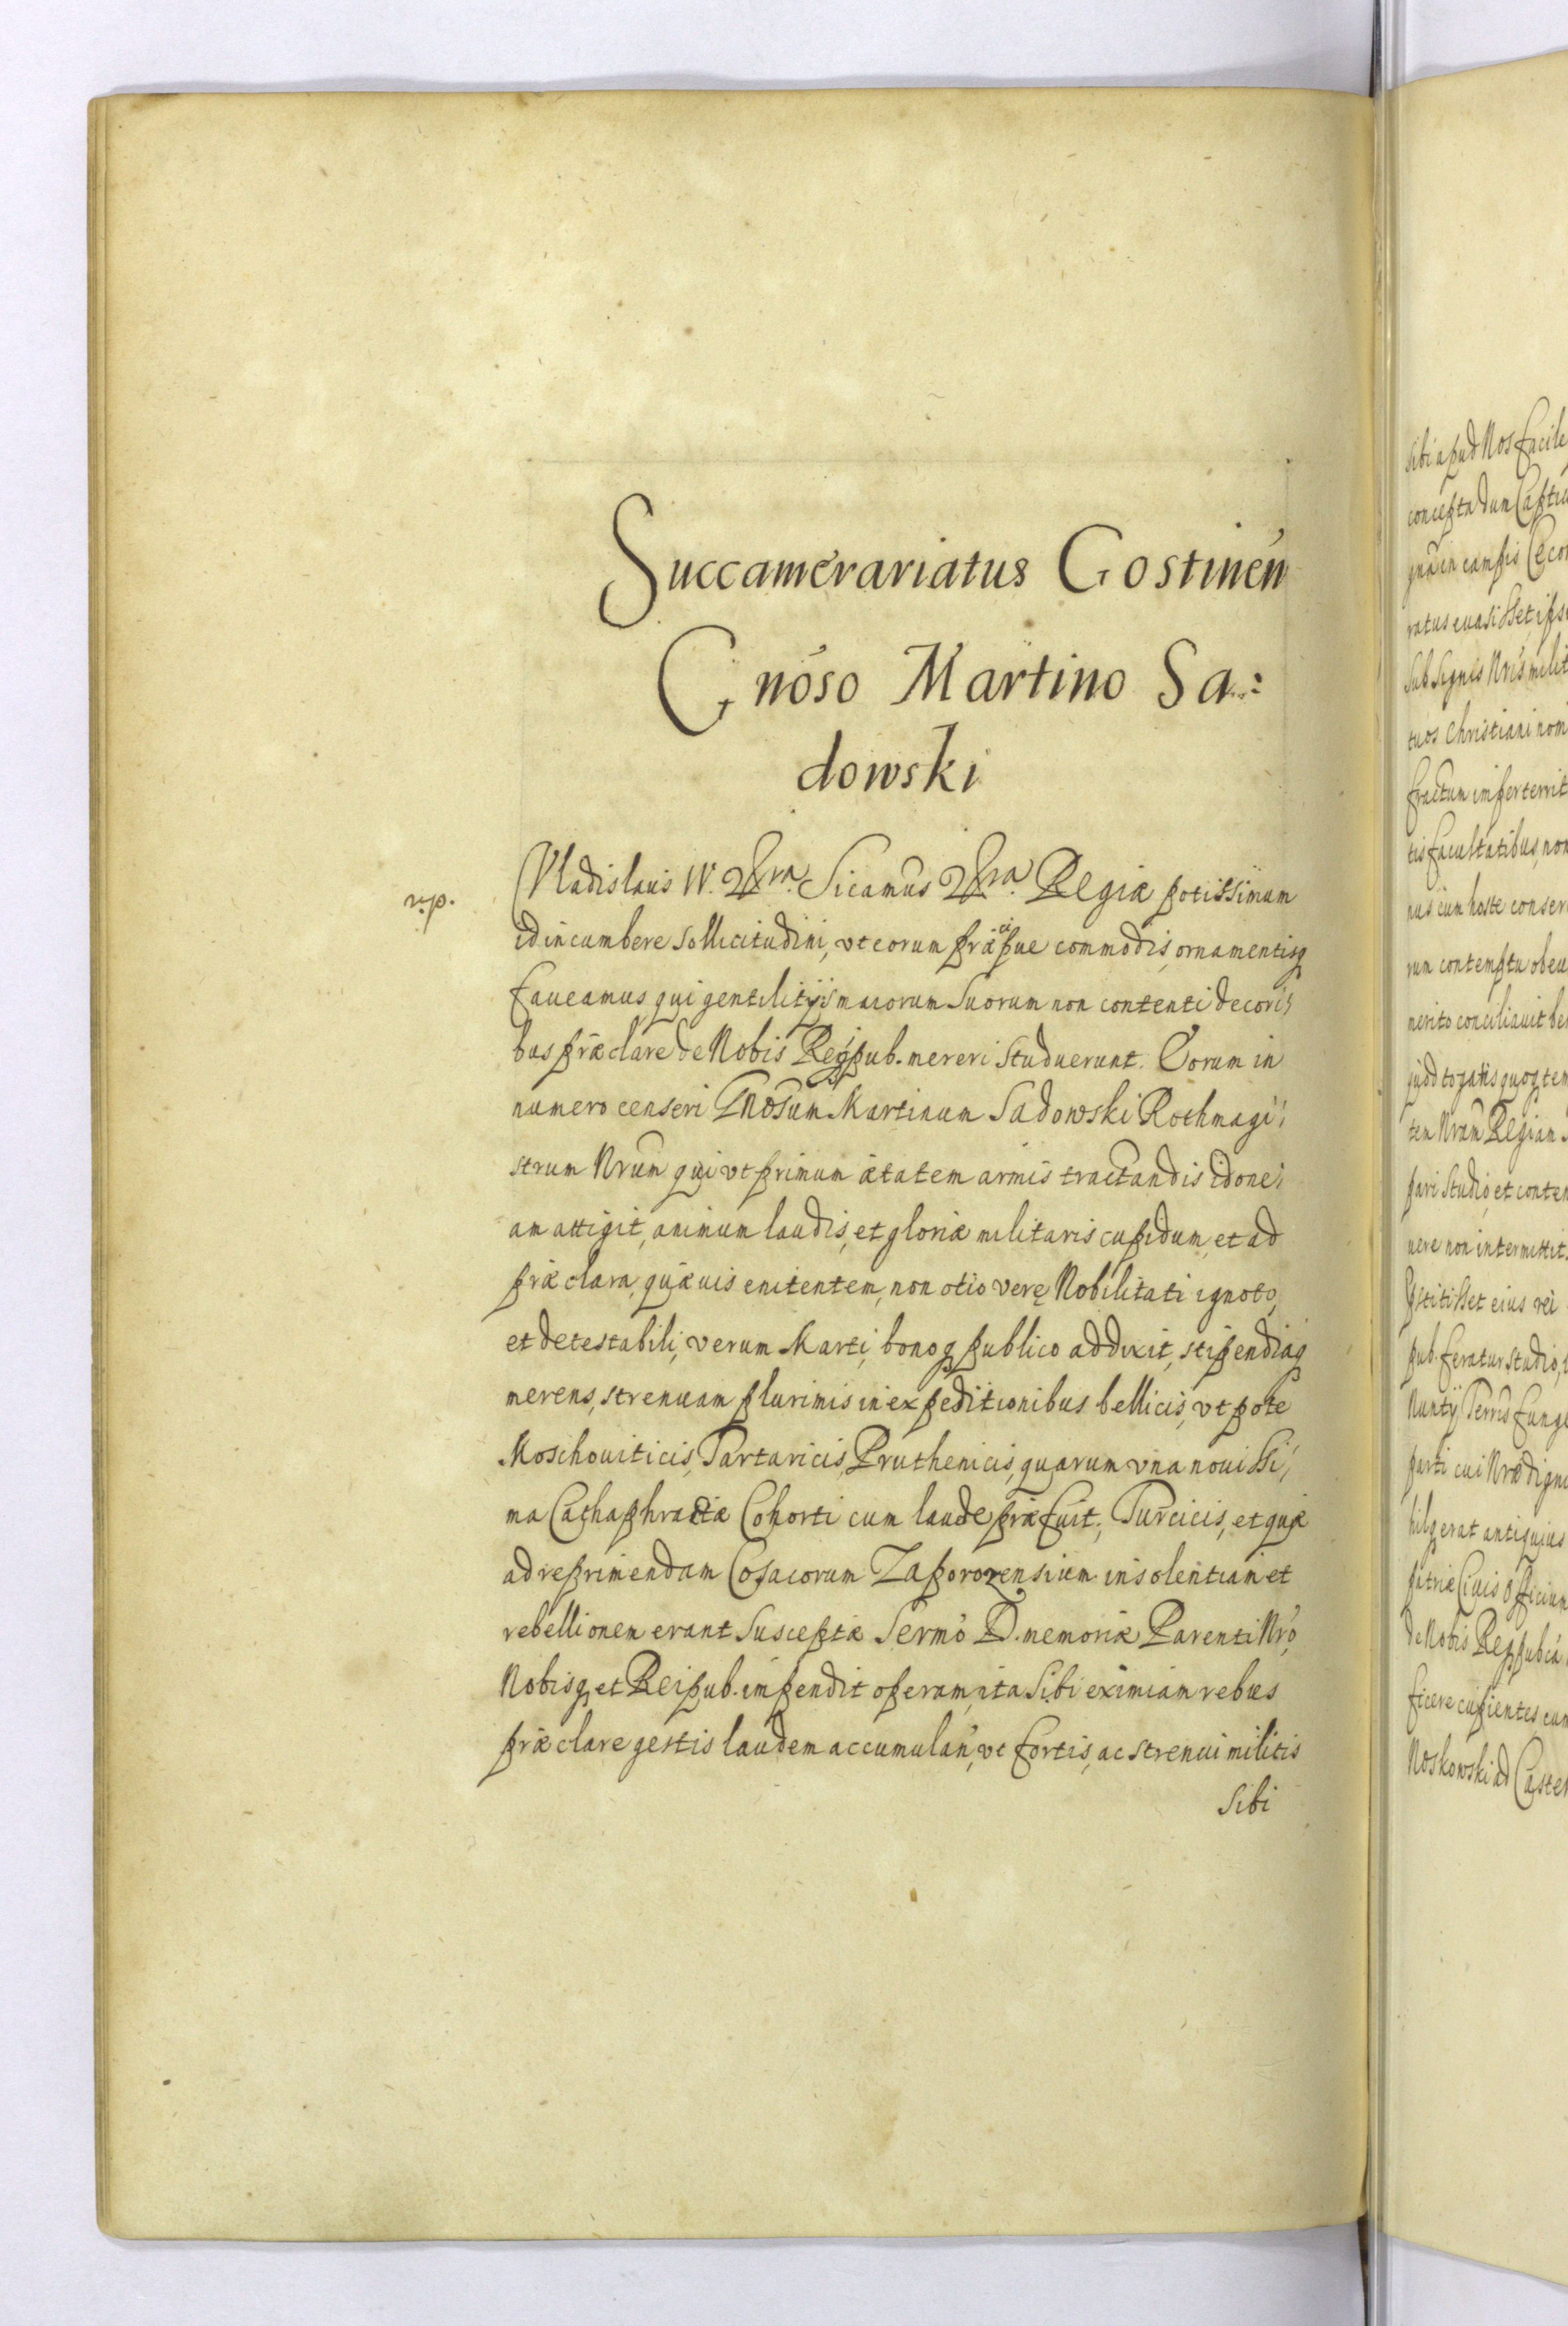 Succamerariatus Gostinen̄
Gnoso Martino Sa:
dowski
Vladislaus IV. &ra. Sicamus &ra. Regiæ potissimum
id incumbere sollicitudini, vt eorum præcipue commodis, ornamentisq
faueamus, qui gentilitijs maiorum suorum non contenti decori,
bus præclare de Nobis Reqpub. mereri studuerunt. Eorum in
numero censeri Gnosum Martinum Sadowski Rothmagi,
strum Nrum qui vt primum ætatem armis tractandis idone,
am attigit, animum laudis, et gloriæ militaris cupidum, et ad
præclara quæuis enitentem, non otio verę Nobilitati ignoto,
et detestabili, verum Marti, bonoq publico addixit, stipendiaq
merens, strenuam plurimis in expeditionibus bellicis, vt pote
Moschouiticis, Tartaricis, Pruthenicis, quarum vna nouissi,
ma Cathaphractæ Cohorti cum laude præfuit, Turcicis, et quæ
ad reprimendam Cosacorum Zaporozensium insolentiam et
rebellionem erant susceptæ Sermo D. memoriæ Parenti Nro,
Nobisq et Reipub. impendit operam, ita sibi eximiam rebus
præclare gestis laudem accumulan̄, vt fortis, ac strenui militis
sibi
sibi apud Nos facile
concepta dum
in campis Cecor
ratus euasisset, ipse
sub signis Nris milit
tuos Christiani nomi
fractum imperterrit
tis facultatibus, non
nus cum hoste conser
rum contemptu obeu
merito conciliauit be
quod togatis quoq tem
tem Nram Regiam
pari studio, et conten
nere non intermittit.
pstitisset eius rei
pub. feratur studio,
Nuntij Terris funge
parti cui Nræ digni
antiquius
patriæ Ciuis officium
de Nobis Reqpubca
ficere cupientes cum
Noskowski ad Castel